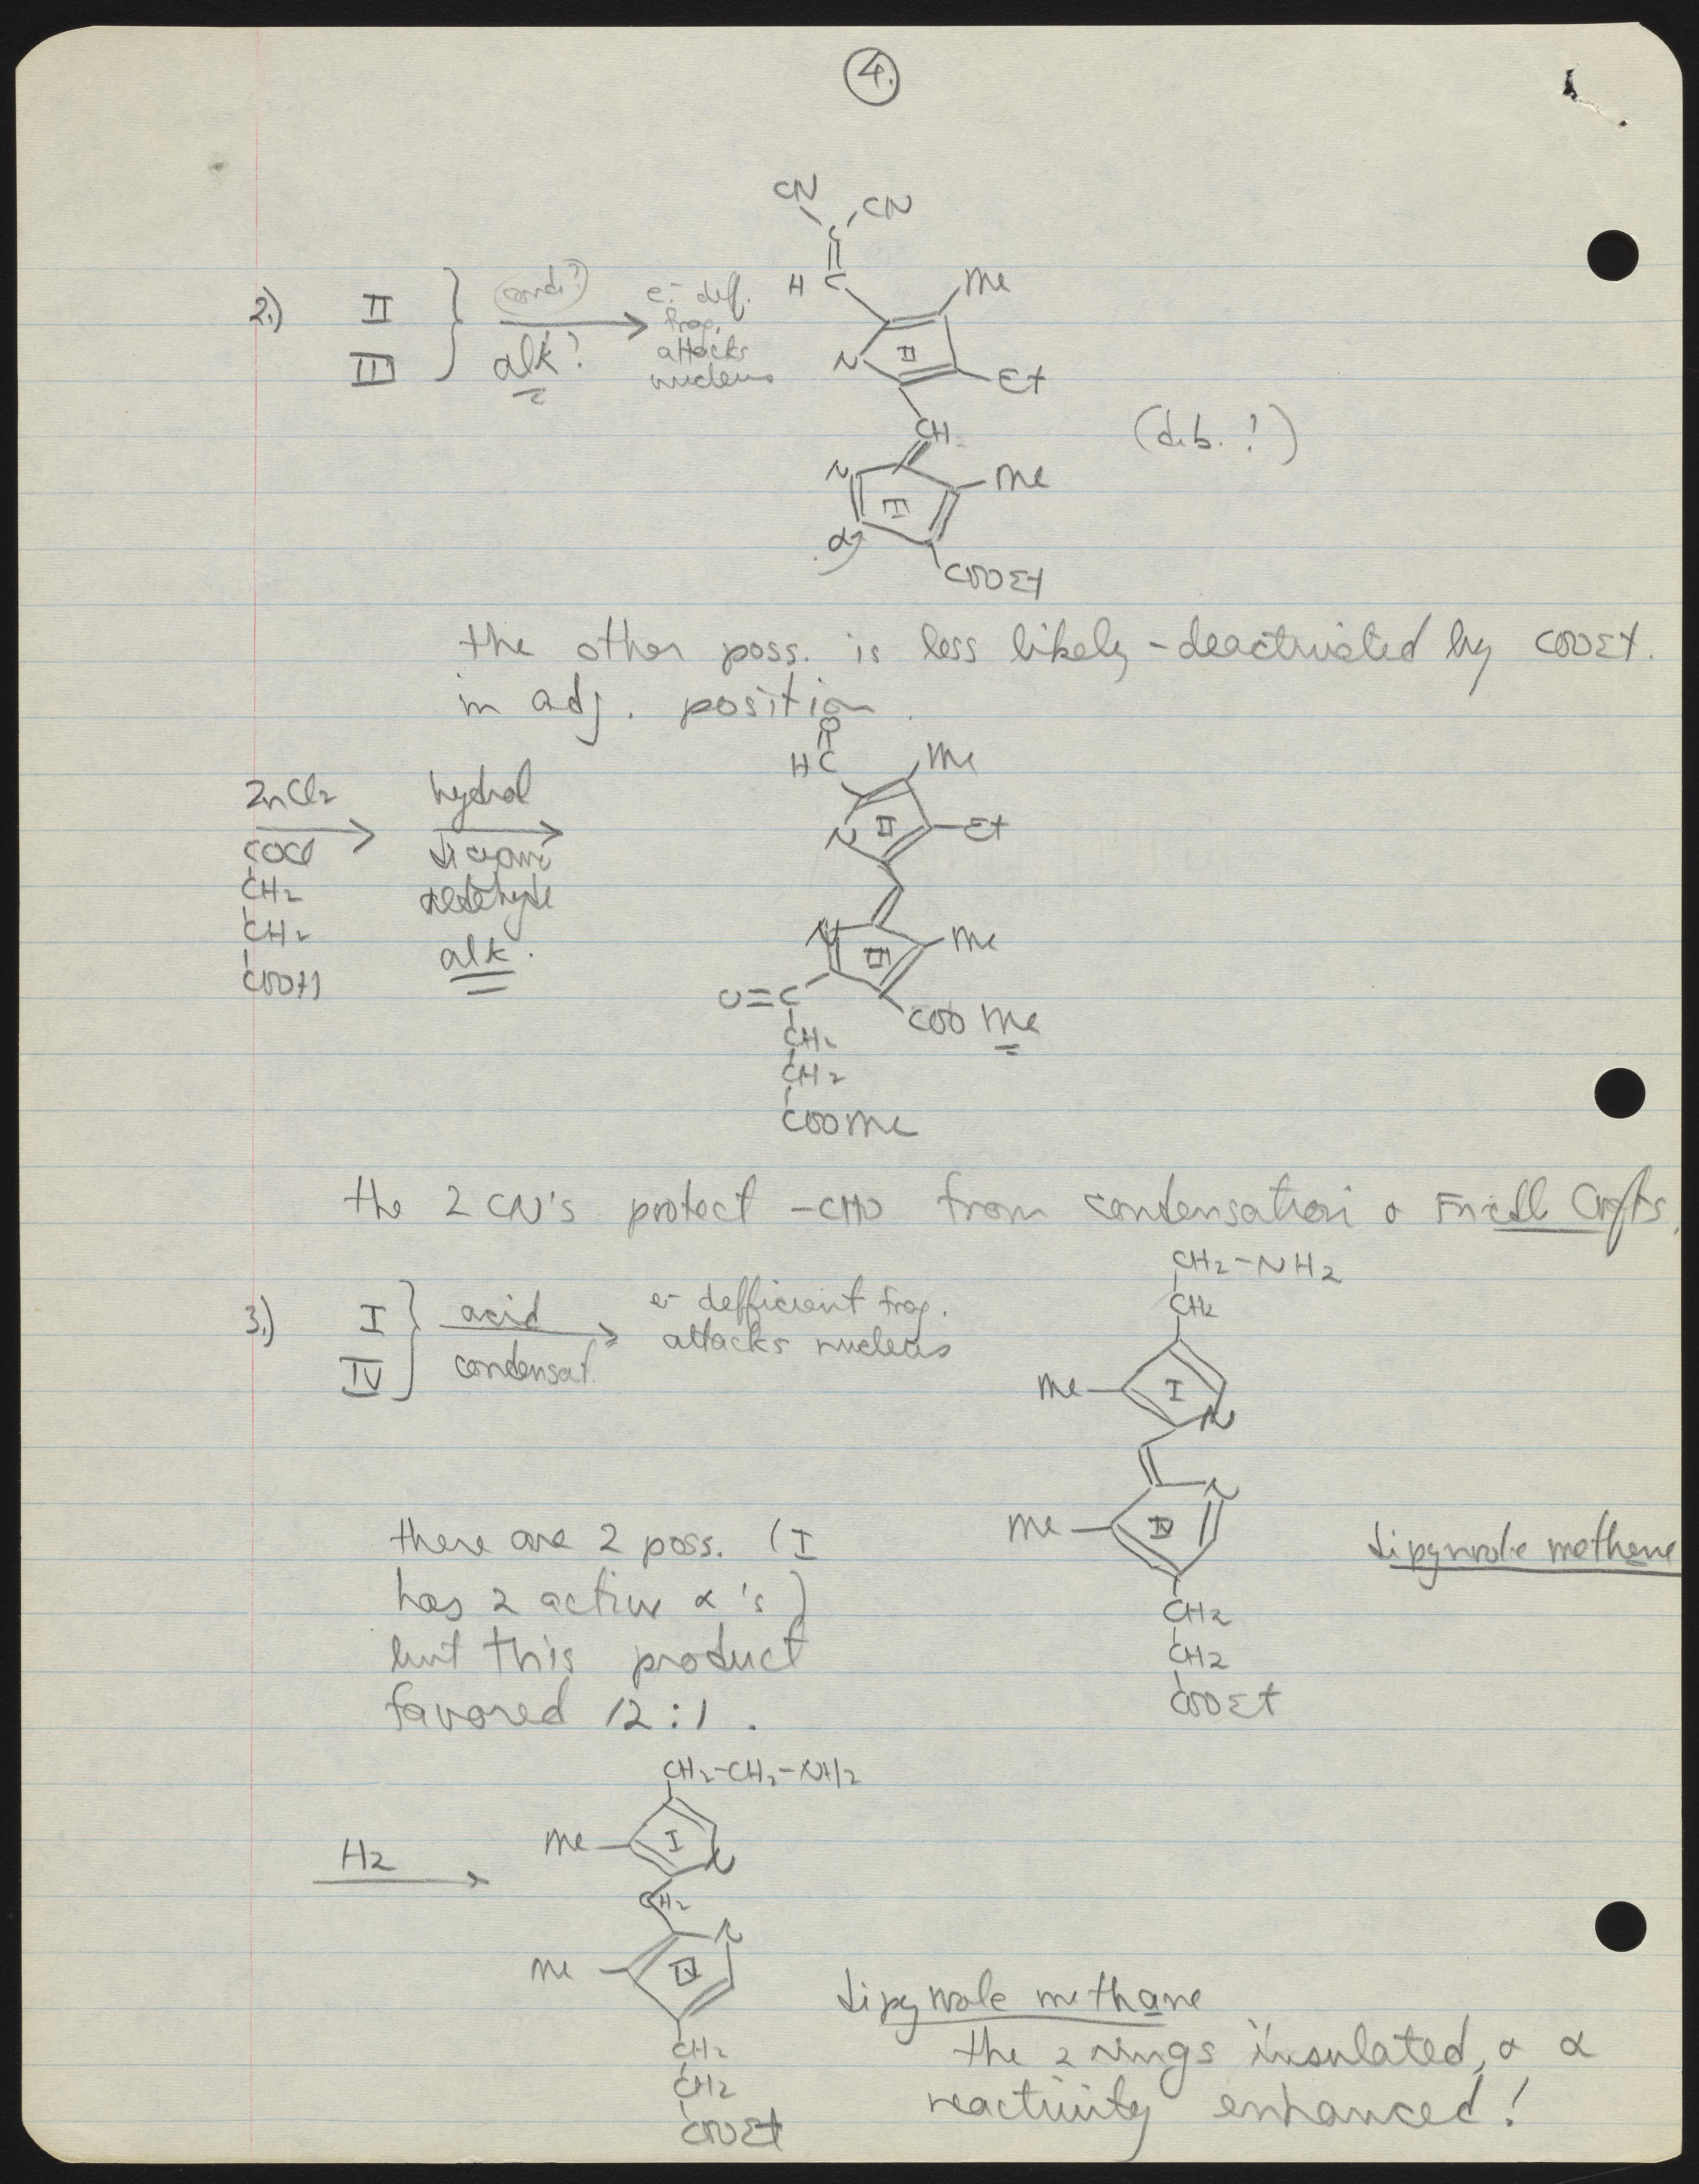 4.
CN
CN
C
H C
Me
2.) II
III
alk?
e- def.
frag.
attacks
nucleus
N II
Et
CH
(d.b.!)
N
Me
III
α
COOEt
the other poss. is less likely - deactivated by COOEt.
in adj. position.
O
HC
Me
ZnCl2
hydrol
N II
Et
COCl
dicyano
CH2
aldehyde
CH2
N
Me
alk.
III
COOH
O=C
COOMe
CH2
CH2
COOMe
the 2 CN's protect -CHO from condensation & Friedl Crafts.
CH2-NH2
CH2
3.) I
IV
acid
condensat.
e- defficient frag.
attacks nucleus
Me
I
N
N
Me
IV
there are 2 poss. (I
has 2 active α's)
but this product
favored 12:1.
dipyrrole methene
CH2
CH2
COOEt
CH2-CH2-NH2
H2
Me
I
N
CH2
N
Me
IV
dipyrrole methane
the 2 rings insulated, & α
reactivity enhanced!
CH2
CH2
COOEt